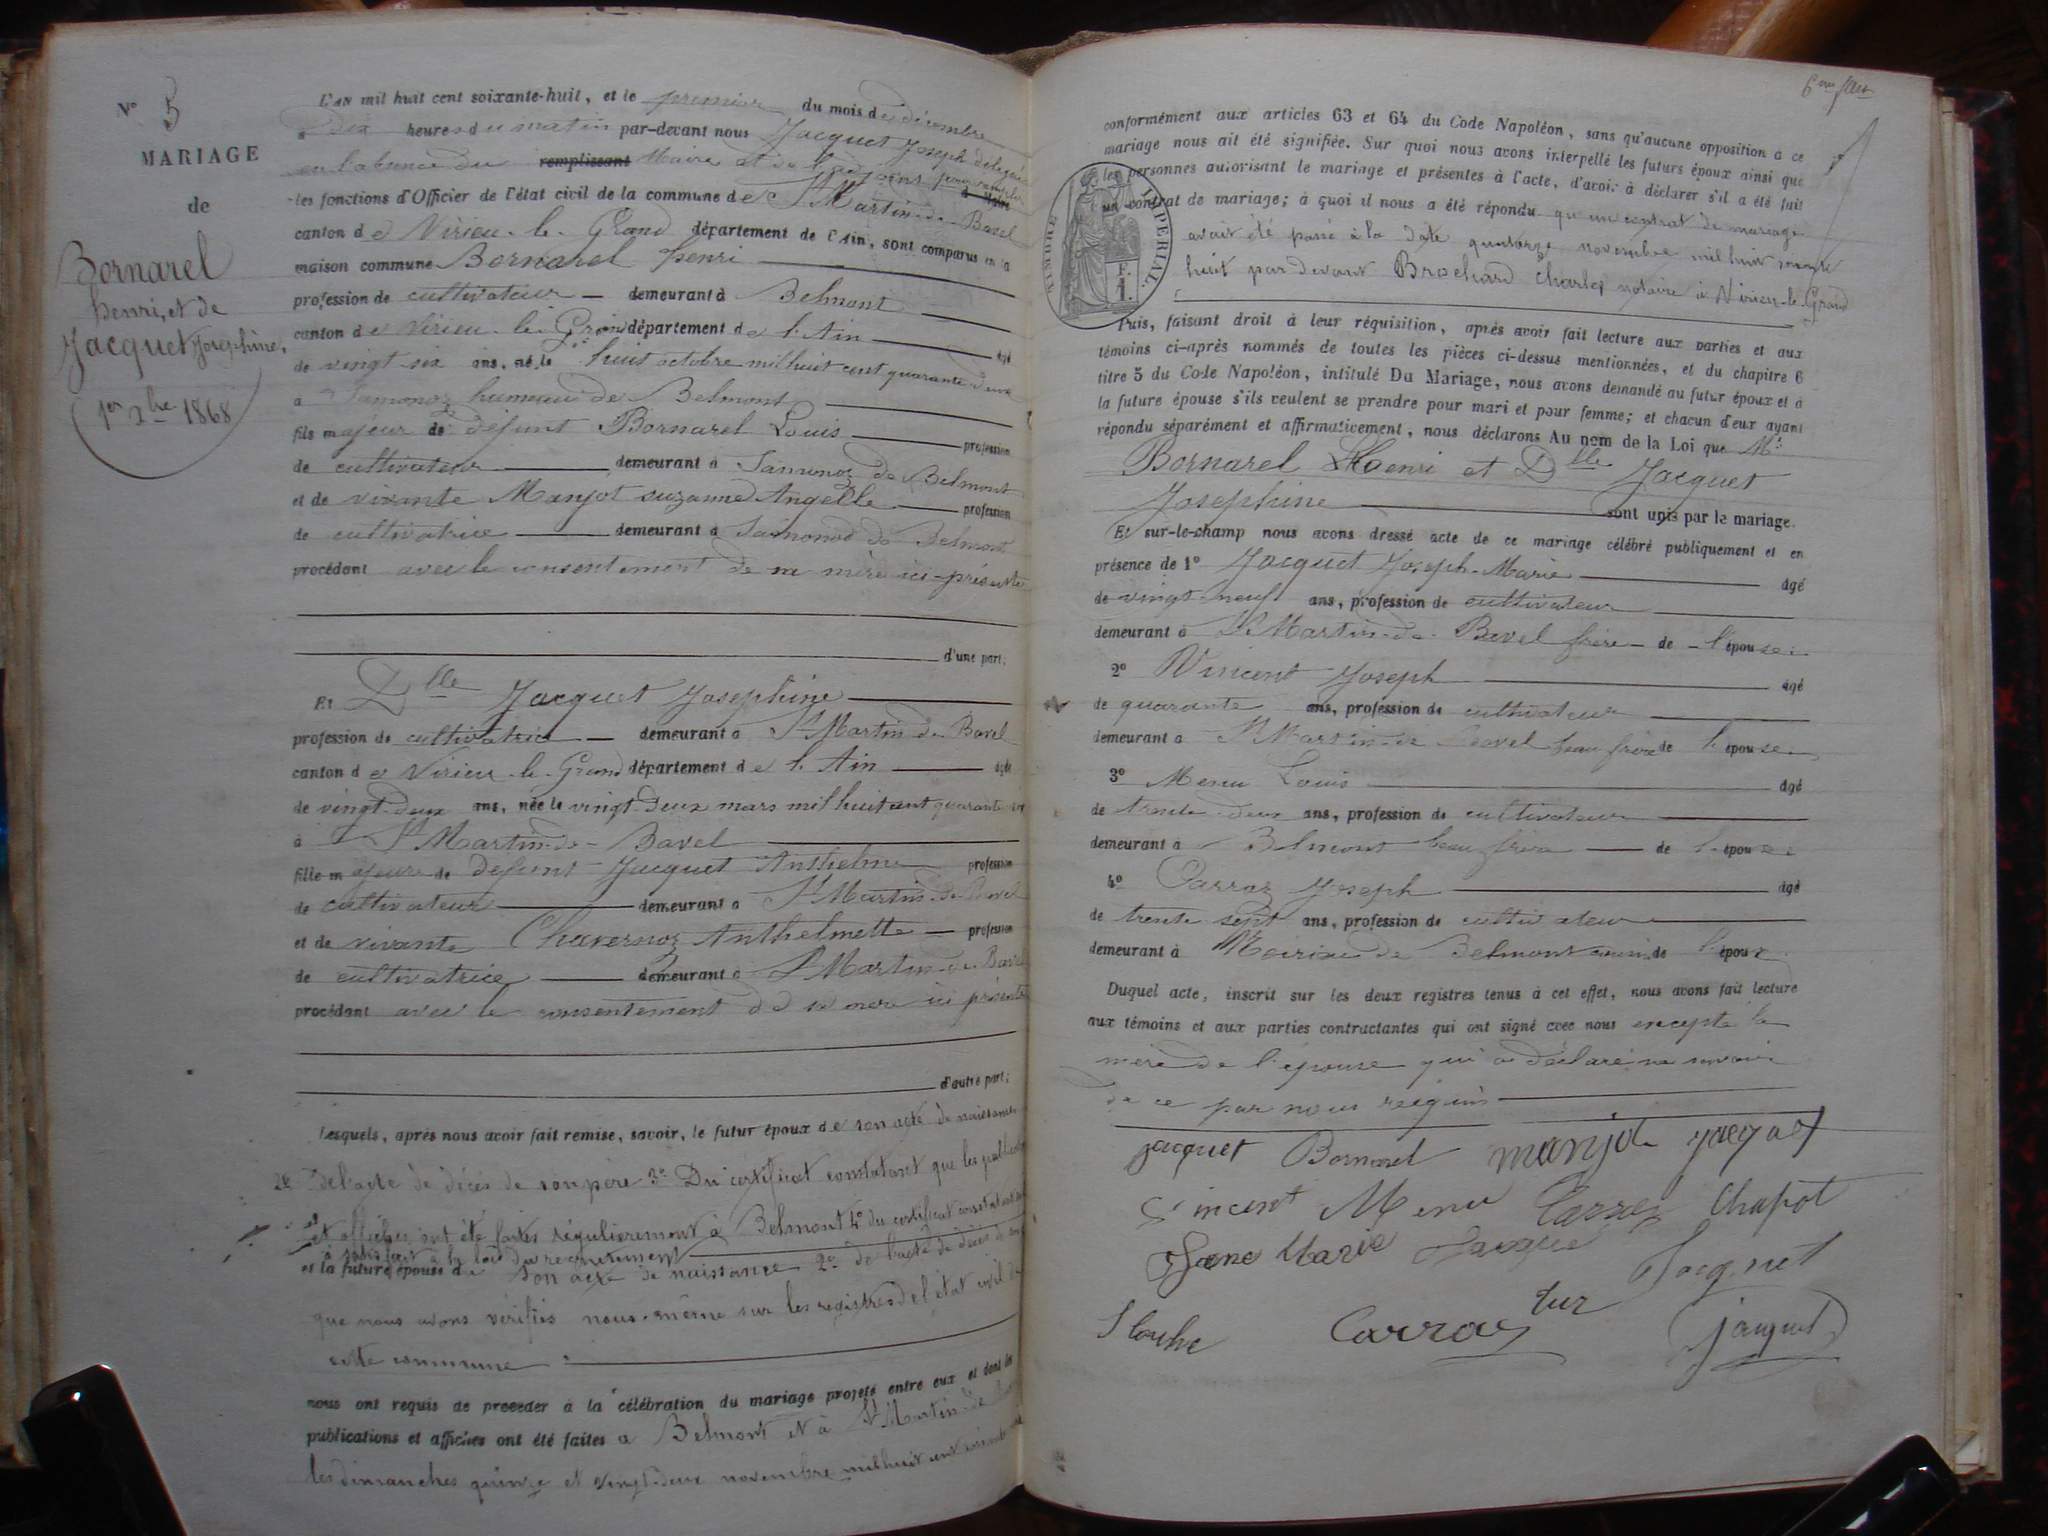 N° 5
MARIAGE
de
Bornarel
henri, et de
Jacquet Josephine,
1er Xbre 1868
L'AN mil huit cent soixante-huit, et le premier du mois de décembre
à Dix heures du matin par-devant nous Jacquet Joseph délégué
en l'absence du remplissant Maire et de l'adjoint pour remplir
les fonctions d'Officier de l'état civil de la commune de St Martin-de-Bavel
canton de Virieu-le-Grand département de l'Ain, sont comparus en la
maison commune Bornarel henri
profession de cultivateur demeurant à Belmont
canton de Virieu-le-Grand département de l'Ain âgé
de vingt-six ans, né le huit octobre mil huit cent quarante deux
à Samonoz hameau de Belmont
fils majeur de défunt Bornarel Louis profession
de cultivateur demeurant à Samonoz de Belmont
et de vivante Manjot suzanne Angelle profession
de cultivatrice demeurant à Samonod de Belmont
procédant avec le consentement de sa mère ici-présente
d'une part;
Et Dlle Jacquet Josephine
profession de cultivatrice demeurant à St Martin-de-Bavel
canton de Virieu-le-Grand département de l'Ain âgée
de vingt-deux ans, née le vingt-deux mars mil huit cent quarante-six
à St Martin-de-Bavel
fille majeure de défunt Jacquet Anthelme profession
de cultivateur demeurant à St Martin-de-Bavel
et de vivante Chavernoz Anthelmette profession
de cultivatrice demeurant à St Martin-de-Bavel
procédant avec le consentement de sa mere ici présente
d'autre part;
Lesquels, après nous avoir fait remise, savoir, le futur époux de son acte de naissance
2° De l'acte de décès de son père 3° Du certificat constatant que les publications
et affiches ont été faites régulierement à Belmont 4° du certificat constatant
à satisfait à la loi du recrutement
et la future épouse de son acte de naissance 2° de l'acte de décès de son
que nous avons vérifiés nous-même sur les registres de l'état civil de
cette commune
nous ont requis de procéder à la célébration du mariage projeté entre eux et dont les
publications et affiches ont été faites à Belmont et à St Martin-de
les dimanches quinze et vingt-deux novembre mil huit cent
6me
conformément aux articles 63 et 64 du Code Napoléon, sans qu'aucune opposition à ce
mariage nous ait été signifiée. Sur quoi nous avons interpellé les futurs époux ainsi que
les personnes autorisant le mariage et présentes à l'acte, d'avoir à déclarer s'il a été fait
un contrat de mariage; à quoi il nous a été répondu qu'un contrat de mariage
avait été passé à la date quatorze novembre mil huit
huit par devant Brochard Charles notaire à Virieu-le-Grand
TIMBRE IMPERIAL.
1 F.
Puis, faisant droit à leur réquisition, après avoir fait lecture aux parties et aux
témoins ci-après nommés de toutes les pièces ci-dessus mentionnées, et du chapitre 6
titre 5 du Code Napoléon, intitulé Du Mariage, nous avons demandé au futur époux et à
la future épouse s'ils veulent se prendre pour mari et pour femme; et chacun d'eux ayant
répondu séparément et affirmativement, nous déclarons Au nom de la Loi que Mr
Bornarel Henri et Dlle Jacquet
Josephine sont unis par le mariage.
Et sur-le-champ nous avons dressé acte de ce mariage célébré publiquement et en
présence de 1° Jacquet Joseph-Marie âgé
de vingt-neuf ans, profession de cultivateur
demeurant à St Martin-de-Bavel frère de l'épouse
2° Vincent Joseph âgé
de quarante ans, profession de cultivateur
demeurant à St Martin-de Bavel beau frère de l'épouse
3° Menu Louis âgé
de trente-deux ans, profession de cultivateur
demeurant à Belmont beau frère de l'épouse
4° Carraz Joseph âgé
de trente sept ans, profession de cultivateur
demeurant à de Belmont de l'époux
Duquel acte, inscrit sur les deux registres tenus à cet effet, nous avons fait lecture
aux témoins et aux parties contractantes qui ont signé avec nous excepté la
mère de l'épouse qui a déclaré ne savoir
de ce par nous requis
jacquet Bornarel manjot jacquet
Vincent Menu Carraz Chapot
Jane Marie Jacquet
Carraz tur jacquet